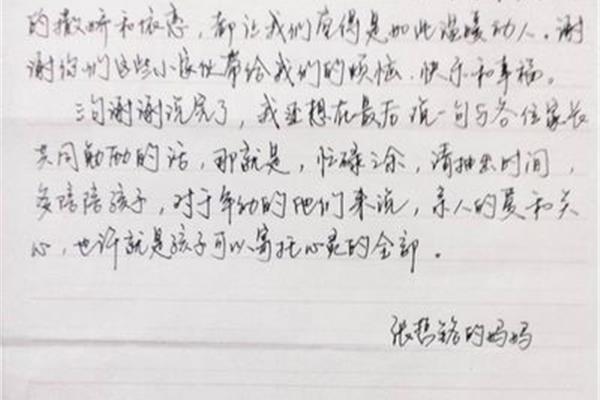 的撒娇和依恋，都让我们觉得是如此温暖动人。谢
谢你们这些小家伙带给我们的烦恼、快乐和幸福。
三句谢谢说完了，我还想在最后说一句与各位家长
共同勉励的话，那就是，忙碌之余，请抽出时间，
多陪陪孩子，对于年幼的他们来说，亲人的爱和关
心，也许就是孩子可以寄托心灵的全部。
张哲铭的妈妈